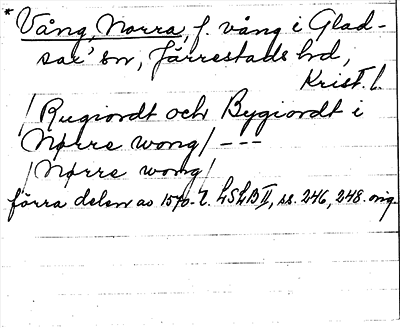 * Vång, Norra, f. vång i Glad-
sax' sn, Järrestads hd,
Krist. l.
/Rugiordt och Bygiordt i
Nørre wong/ ---
/Nørre wong/
förra delen av 1570-t. LSLB II, ss. 246, 248. orig.